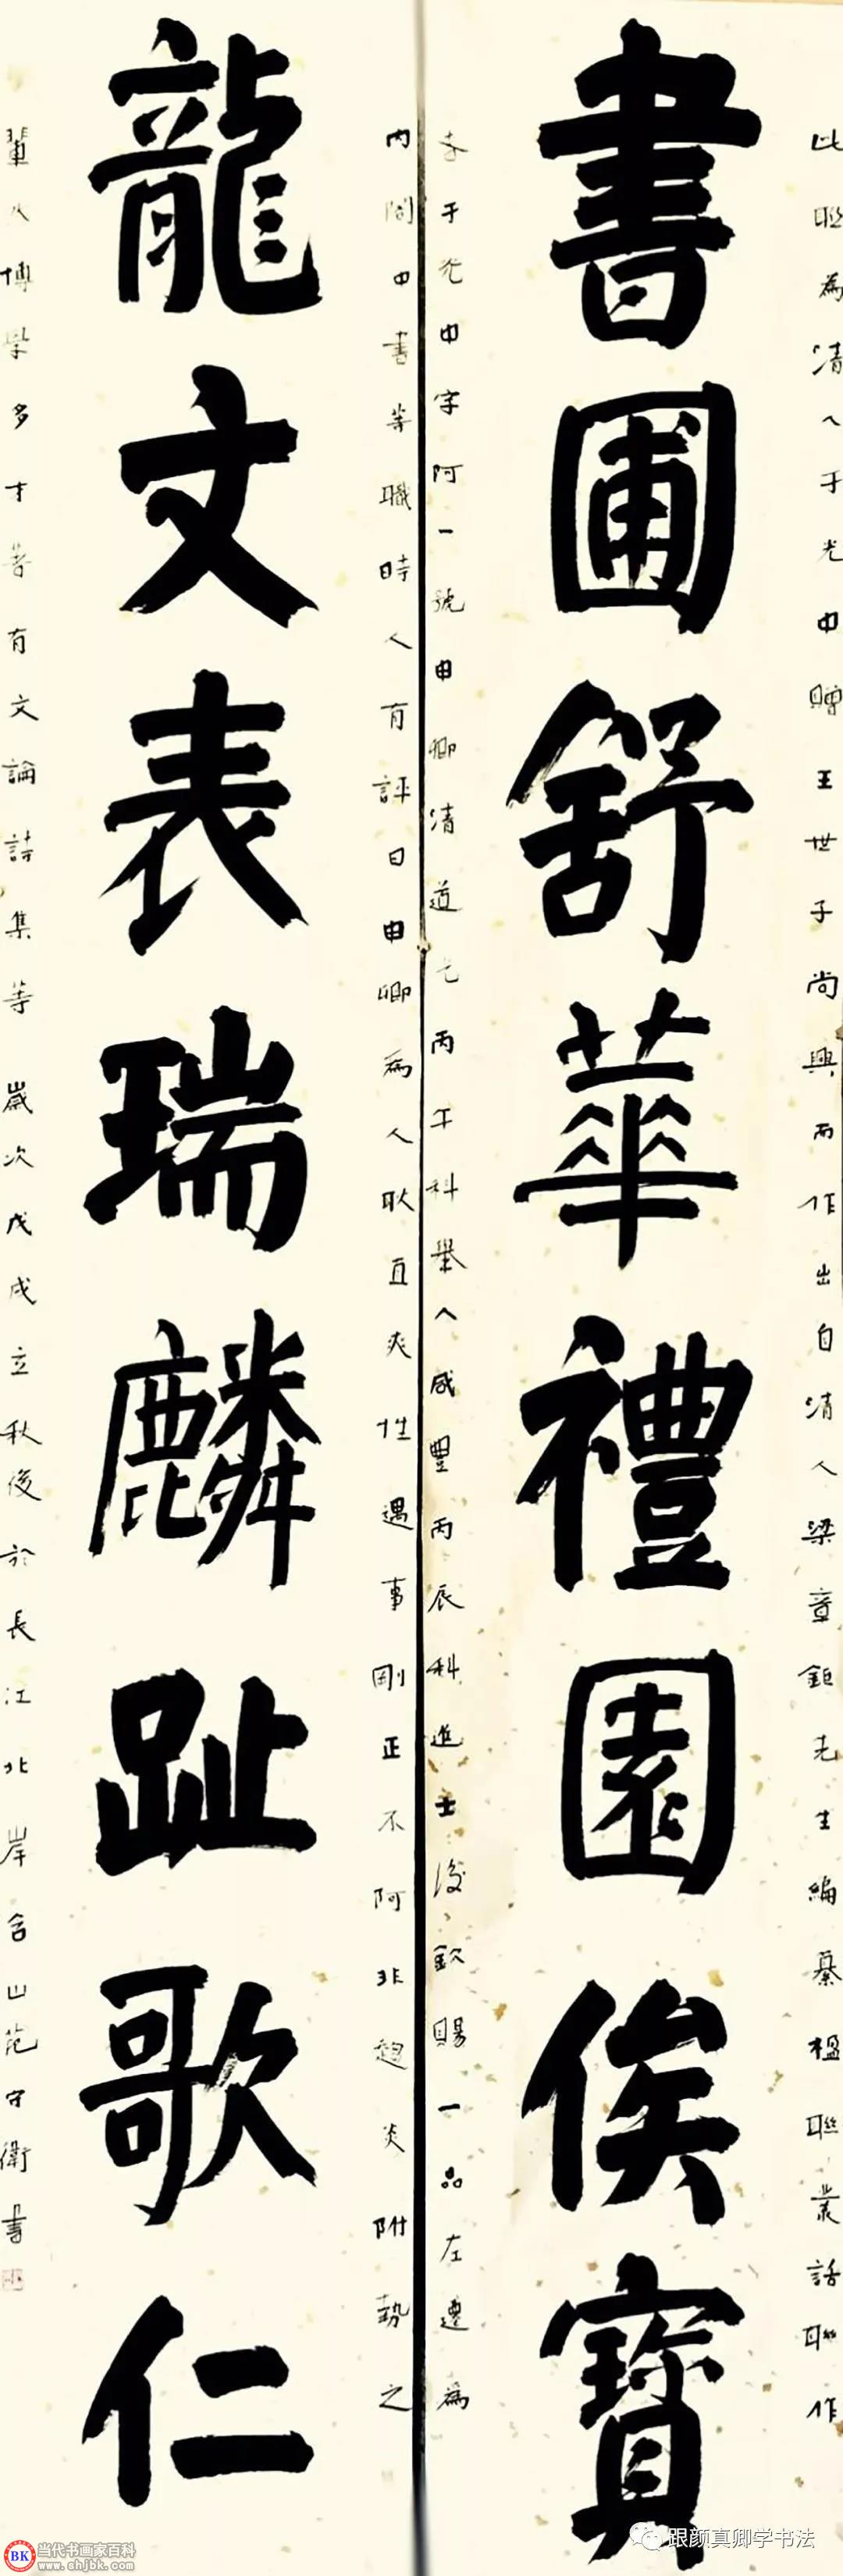 此聯為清人于光中贈王世子尚興而作出自清人梁章鉅先生編纂楹聯叢話聯作
書圃舒華禮園俟寶
者于光中字阿一號申卿清道光丙午科舉人咸豐丙辰科進士後欽賜一品左遷為
內閣中書等職時人有評曰申卿為人耿直爽性遇事剛正不阿非趨炎附勢之
龍文表瑞麟趾歌仁
輩人博學多才著有文論詩集等 歲次戊戌立秋後於長江北岸含山范守衛書
跟颜真卿学书法
BK 当代书画家百科
www.shjbk.com